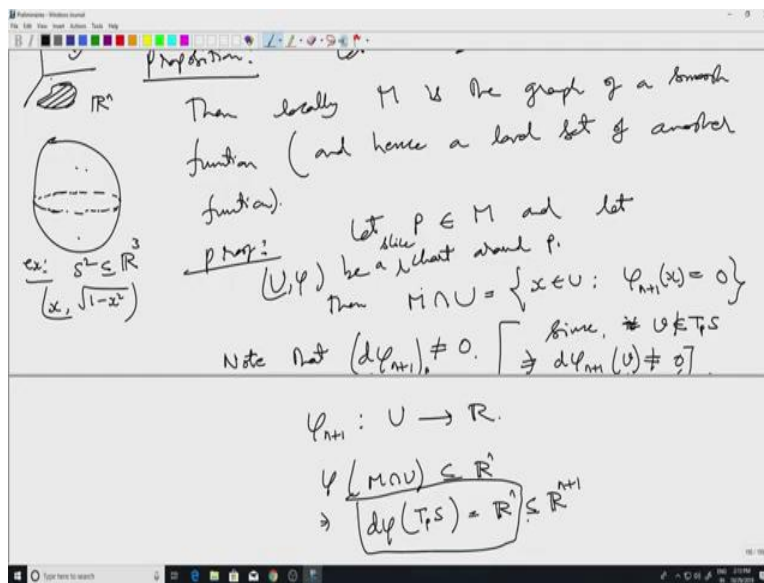 Preliminaries - Windows Journal
File Edit View Insert Actions Tools Help
Proposition:
ℝⁿ
Then locally M is the graph of a smooth
function (and hence a level set of another
function).
proof: Let p ∈ M and let
(U, φ) be a slice chart around p.
ex: S² ⊆ ℝ³
(x, √(1-x²))
Then M ∩ U = { x ∈ U : φₙ₊₁(x) = 0 }
Note that (dφₙ₊₁)ₚ ≠ 0. [ Since, v ∉ TₚS
⇒ dφₙ₊₁(v) ≠ 0 ]
φₙ₊₁ : U → ℝ.
φ(M∩U) ⊆ ℝⁿ
⇒ dφ(TₚS) = ℝⁿ ⊆ ℝⁿ⁺¹
Type here to search